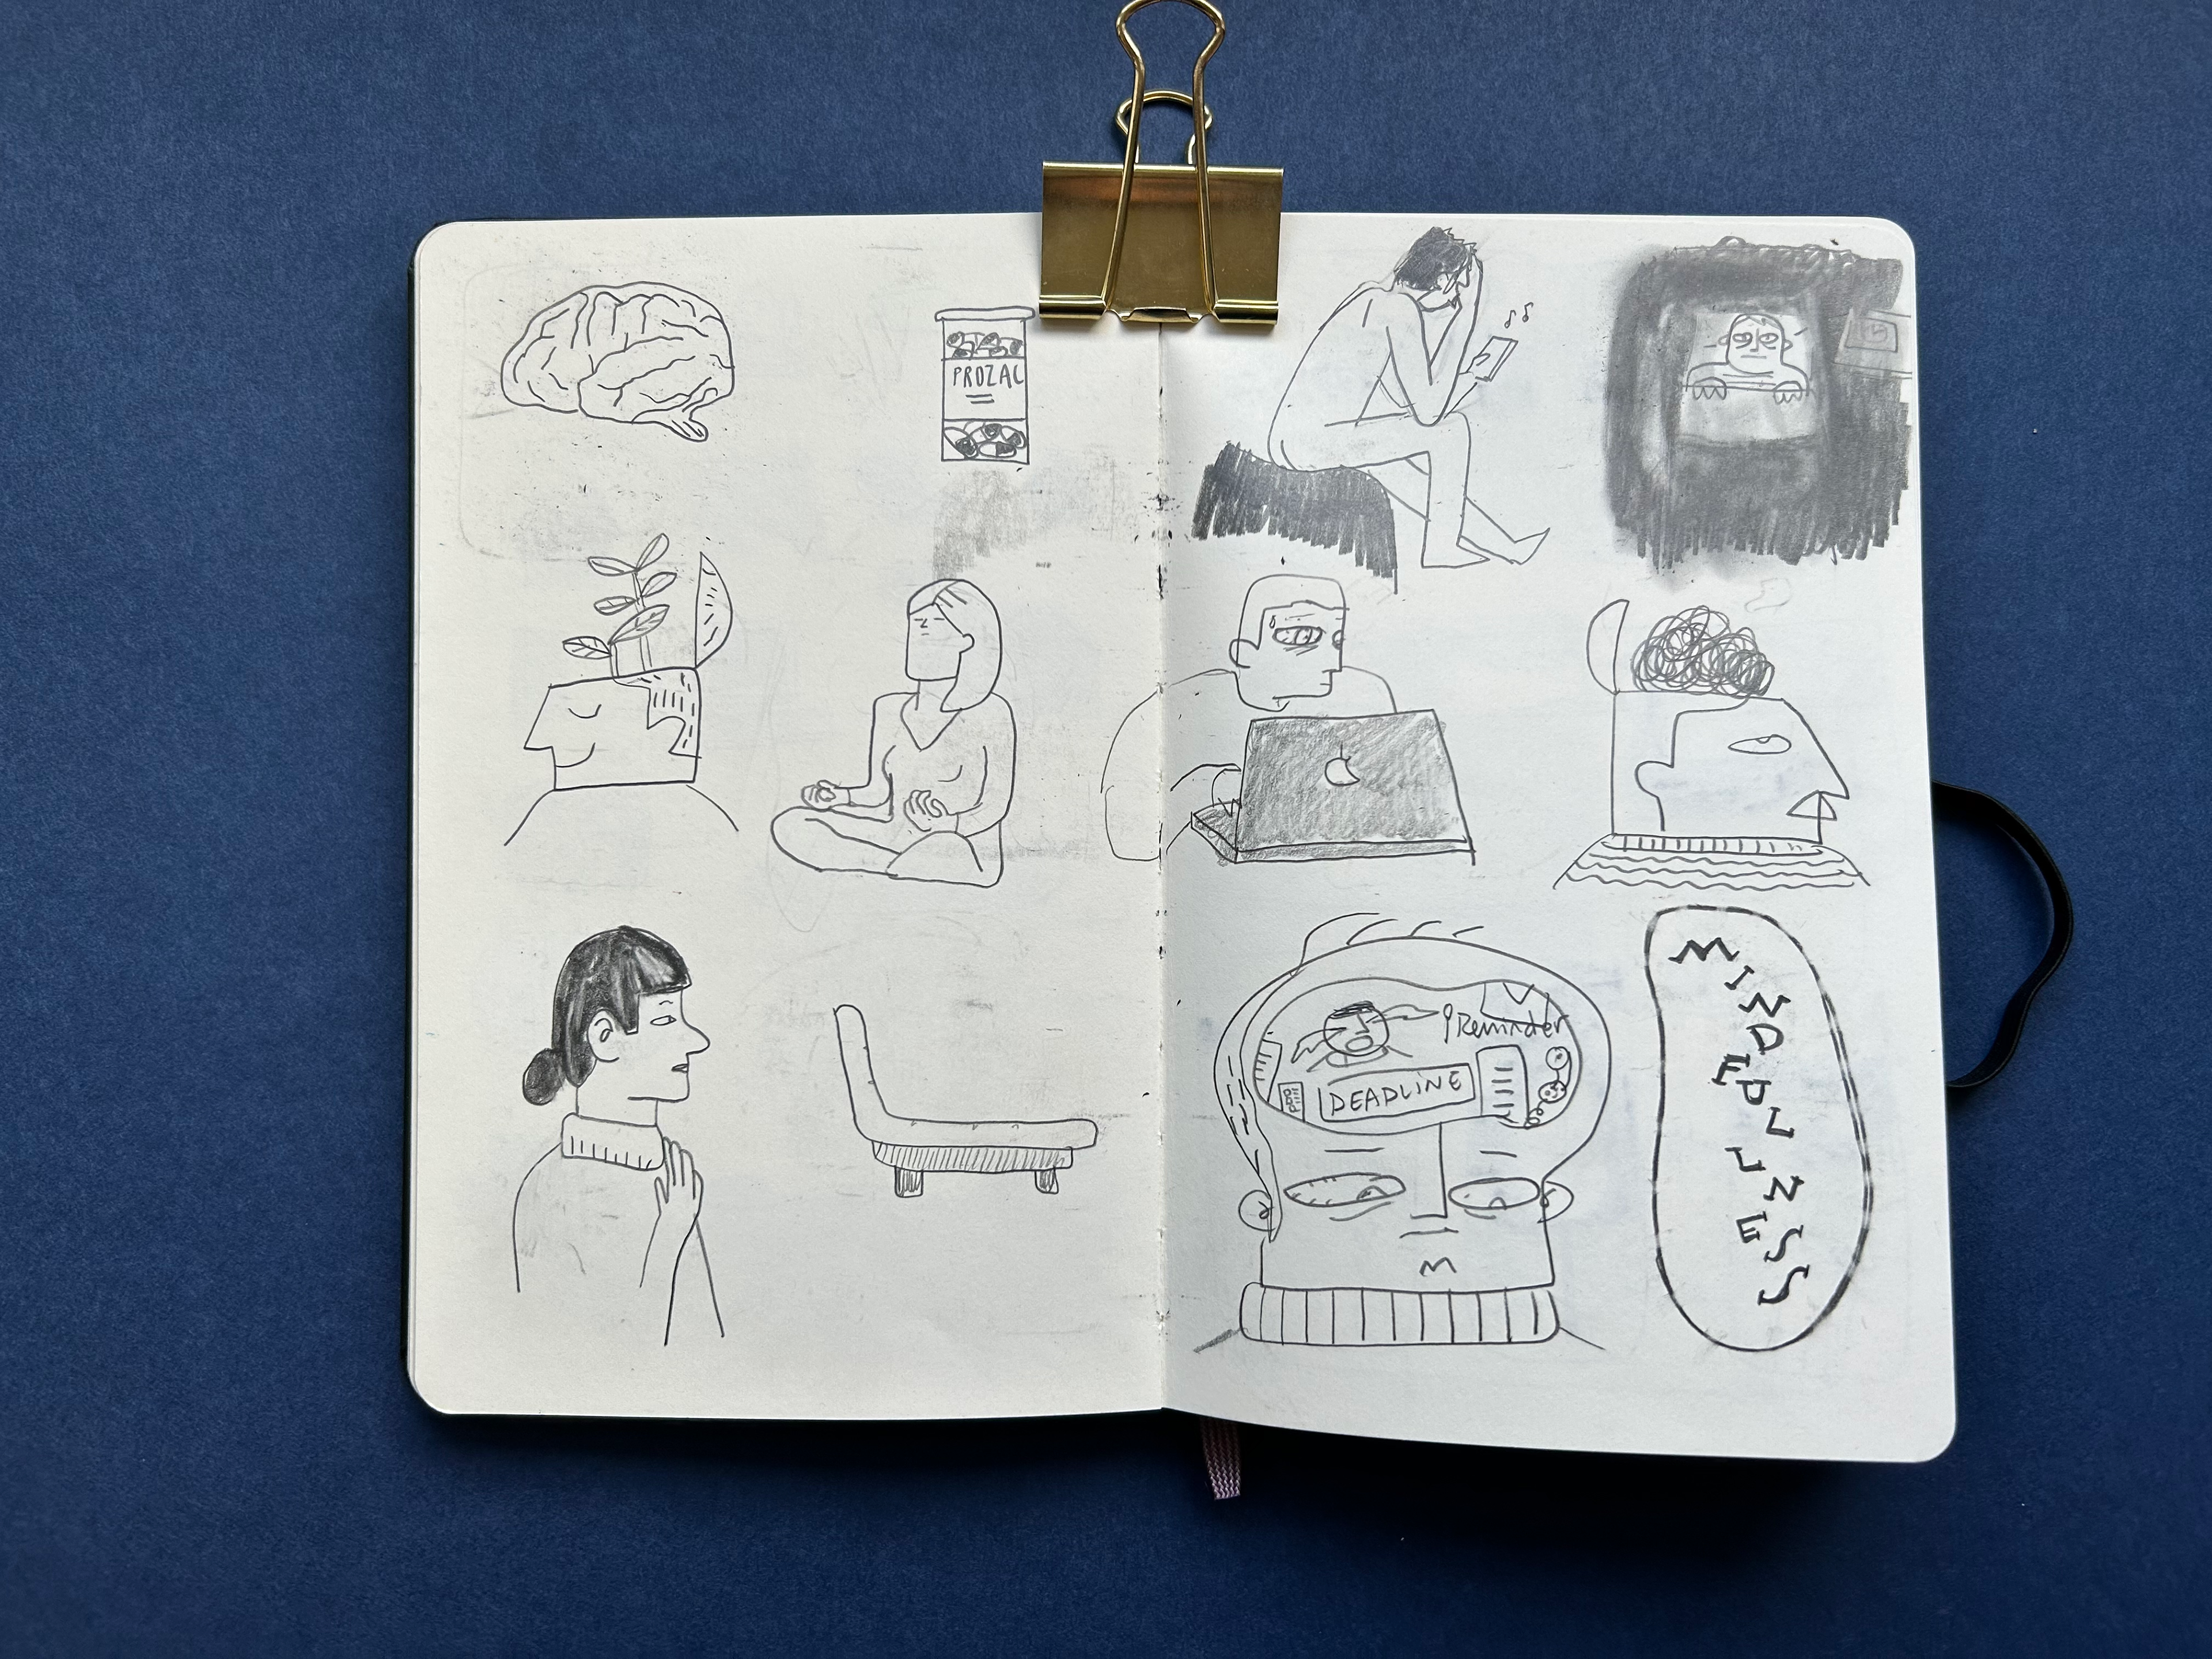 PROZAC
Reminder
DEADLINE
MINDFULLNESS